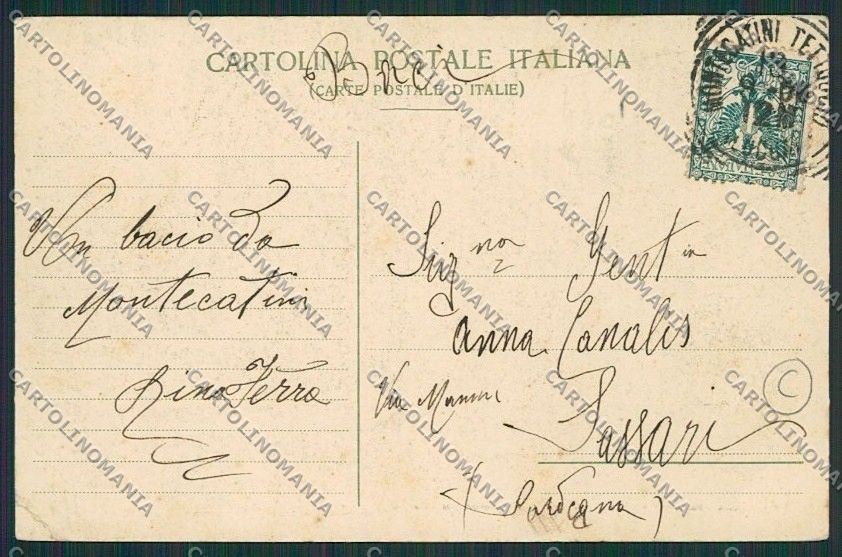 CARTOLINA POSTALE ITALIANA
(CARTE POSTALE D'ITALIE)
Baci
MONTECATINI TETTUCCIO
Un bacio da
Montecatini
Sig.na Gent.ma
Anna Canalis
Via Manni
Sassari
(Sardegna)
C
CARTOLINOMANIA